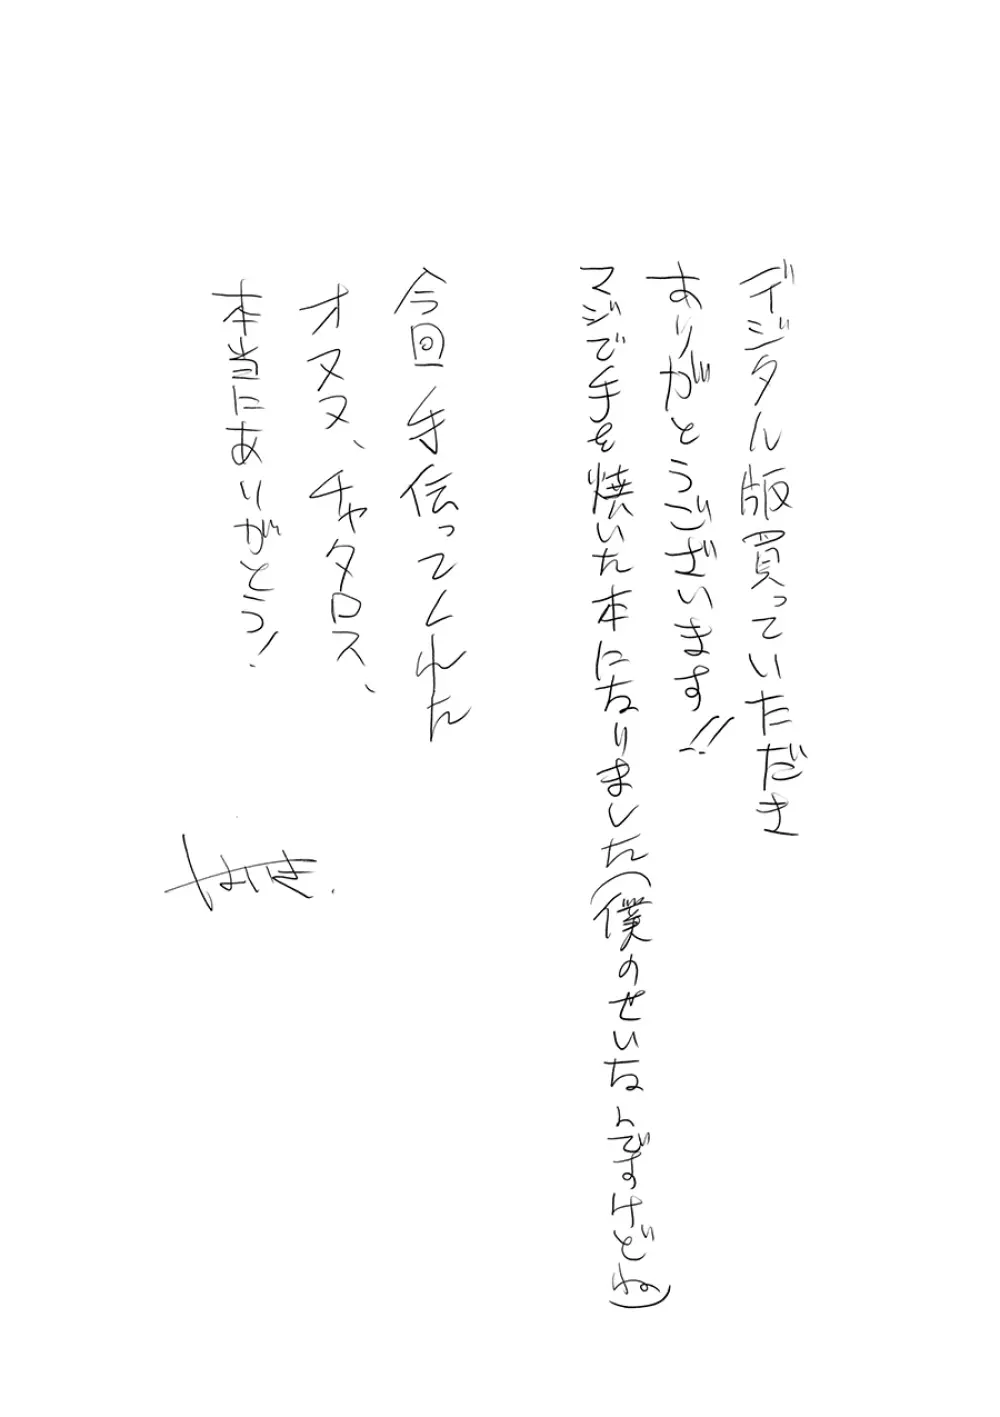 デジタル版買っていただき
ありがとうございます!!
マジで手を焼いた本になりました(僕のせいなんですけどね)
今回手伝ってくれた
オヌヌ、チャタロス、
本当にありがとう!